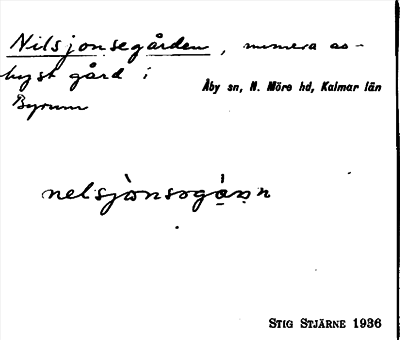 Nilsjonsegården, numera av-
hyst gård i
Byrum
Åby sn, N. Möre hd, Kalmar län
nelsjònsogán
STIG STJÄRNE 1936